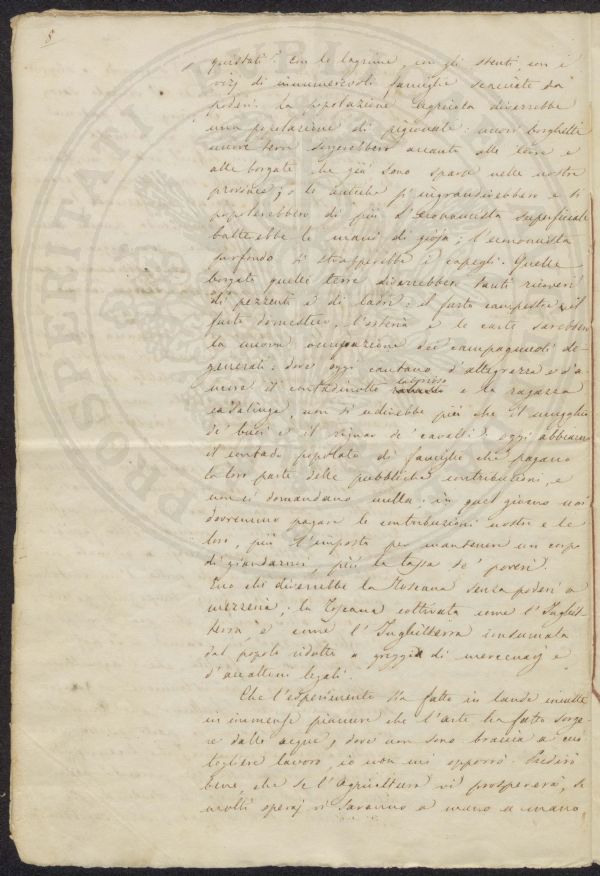 8
quistati? Con le lagrime, con gli stenti con i
di innumerevoli famiglie scacciate da
poderi. La popolazione agricola diverrebbe
una popolazione di pigionali: nuovi borghetti
nuove terre sorgerebbero accanto alle terre e
alle borgate che già sono sparse nelle nostre
provincie; o le antiche s'ingrandirebbero e si
popolerebbero di più. L'economista superficiale
batterebbe le mani di gioja; l'economista
profondo si strapperebbe i capegli. Quelle
borgate quelle terre diverrebbero tanti ricoveri
di pezzenti e di ladri: il furto campestre e il
furto domestico, l'osteria e le carte sarebbero
la nuova occupazione dei campagnuoli de-
generati: dove oggi cantano d'allegrezza e d'a-
more il contadinotto e la ragazza
casalinga, non si udirebbe più che il mugghio
de' buoi e il rignar de' cavalli: oggi abbiamo
il contado popolato di famiglie che pagano
la loro parte delle pubbliche contribuzioni, e
non ci domandano nulla: in quel giorno noi
dovremmo pagare le contribuzioni nostre e le
loro, più l'imposta per mantenere un corpo
di giandarmi, più la tassa de' poveri.
Ecco che diverrebbe la Toscana senza poderi a
mezzeria: la Toscana coltivata come l'Inghil-
terra e come l'Inghilterra
dal popolo ridotto a greggia di mercenarj e
d'accattoni legali.
Che l'esperimento sia fatto in lande incolte
in immense pianure che l'arte ha fatto sorge-
re dalle acque, dove non sono braccia a cui
togliere lavoro, io non mi opporrò. Predirò
bene, che se l'agricoltura vi prospererà, se
molti operaj vi saranno a mano a mano
PROSPERITATI